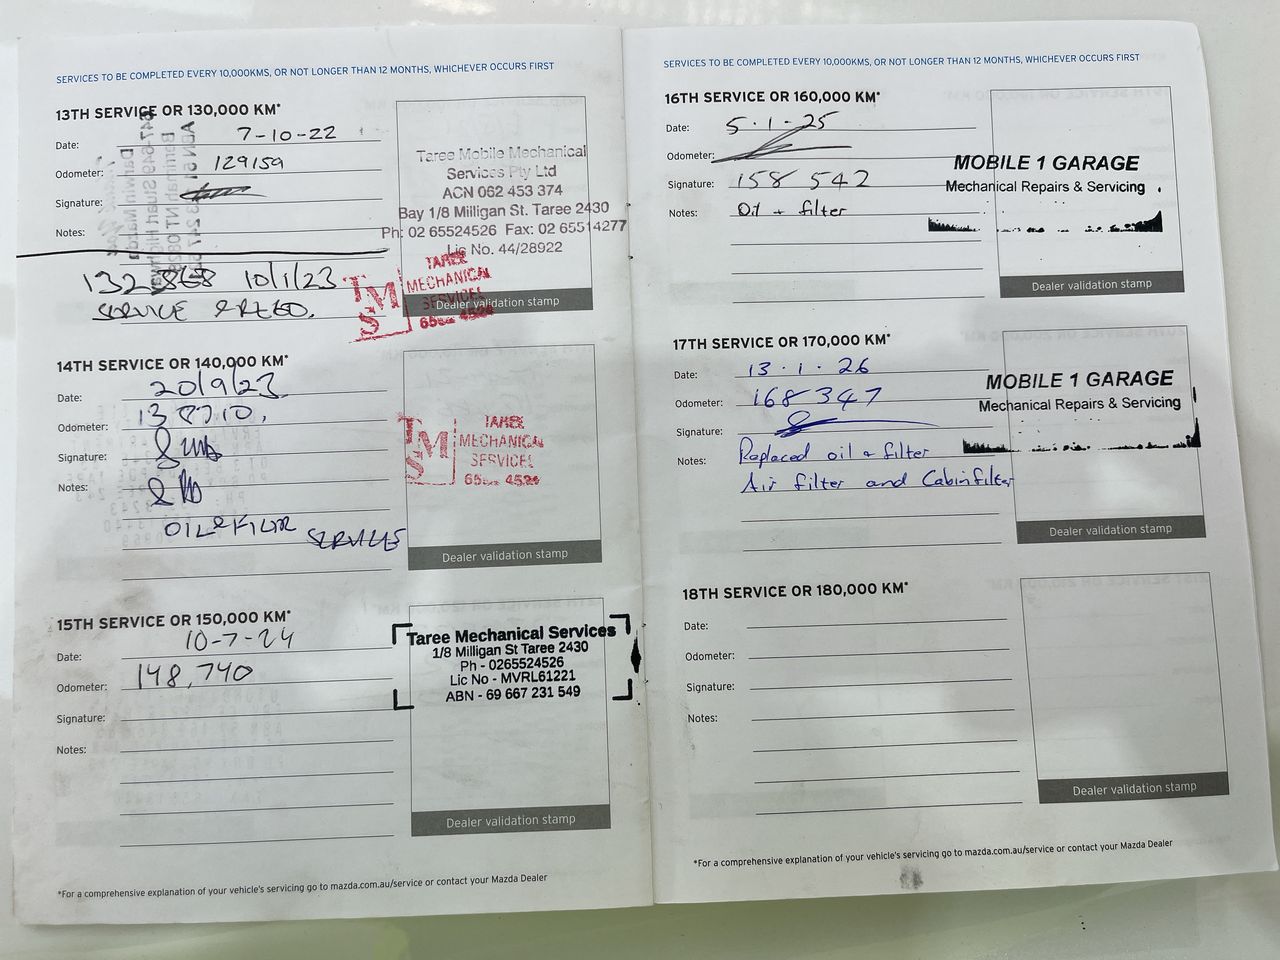 SERVICES TO BE COMPLETED EVERY 10,000KMS, OR NOT LONGER THAN 12 MONTHS, WHICHEVER OCCURS FIRST
13TH SERVICE OR 130,000 KM*
Date: 7-10-22
Odometer: 129159
Signature:
Notes:
132,868 10/1/23
SERVICE & REGO.
Taree Mobile Mechanical
Services Pty Ltd
ACN 062 453 374
Bay 1/8 Milligan St. Taree 2430
Ph: 02 65524526 Fax: 02 65514277
Lic No. 44/28922
TMS
TAREE
MECHANICAL
SERVICES
Dealer validation stamp
14TH SERVICE OR 140,000 KM*
Date: 20/9/23
Odometer: 138710.
Signature:
Notes:
OIL & FILTR SERVICE
TMS
TAREE
MECHANICAL
SERVICES
Dealer validation stamp
15TH SERVICE OR 150,000 KM*
Date: 10-7-24
Odometer: 148,740
Signature:
Notes:
Taree Mechanical Services
1/8 Milligan St Taree 2430
Ph - 0265524526
Lic No - MVRL61221
ABN - 69 667 231 549
Dealer validation stamp
*For a comprehensive explanation of your vehicle's servicing go to mazda.com.au/service or contact your Mazda Dealer
SERVICES TO BE COMPLETED EVERY 10,000KMS, OR NOT LONGER THAN 12 MONTHS, WHICHEVER OCCURS FIRST
16TH SERVICE OR 160,000 KM*
Date: 5.1.25
Odometer:
Signature: 158 542
Notes: Oil + filter
MOBILE 1 GARAGE
Mechanical Repairs & Servicing
Dealer validation stamp
17TH SERVICE OR 170,000 KM*
Date: 13.1.26
Odometer: 168347
Signature:
Notes: Replaced oil & filter
Air filter and Cabin filter
MOBILE 1 GARAGE
Mechanical Repairs & Servicing
Dealer validation stamp
18TH SERVICE OR 180,000 KM*
Date:
Odometer:
Signature:
Notes:
Dealer validation stamp
*For a comprehensive explanation of your vehicle's servicing go to mazda.com.au/service or contact your Mazda Dealer